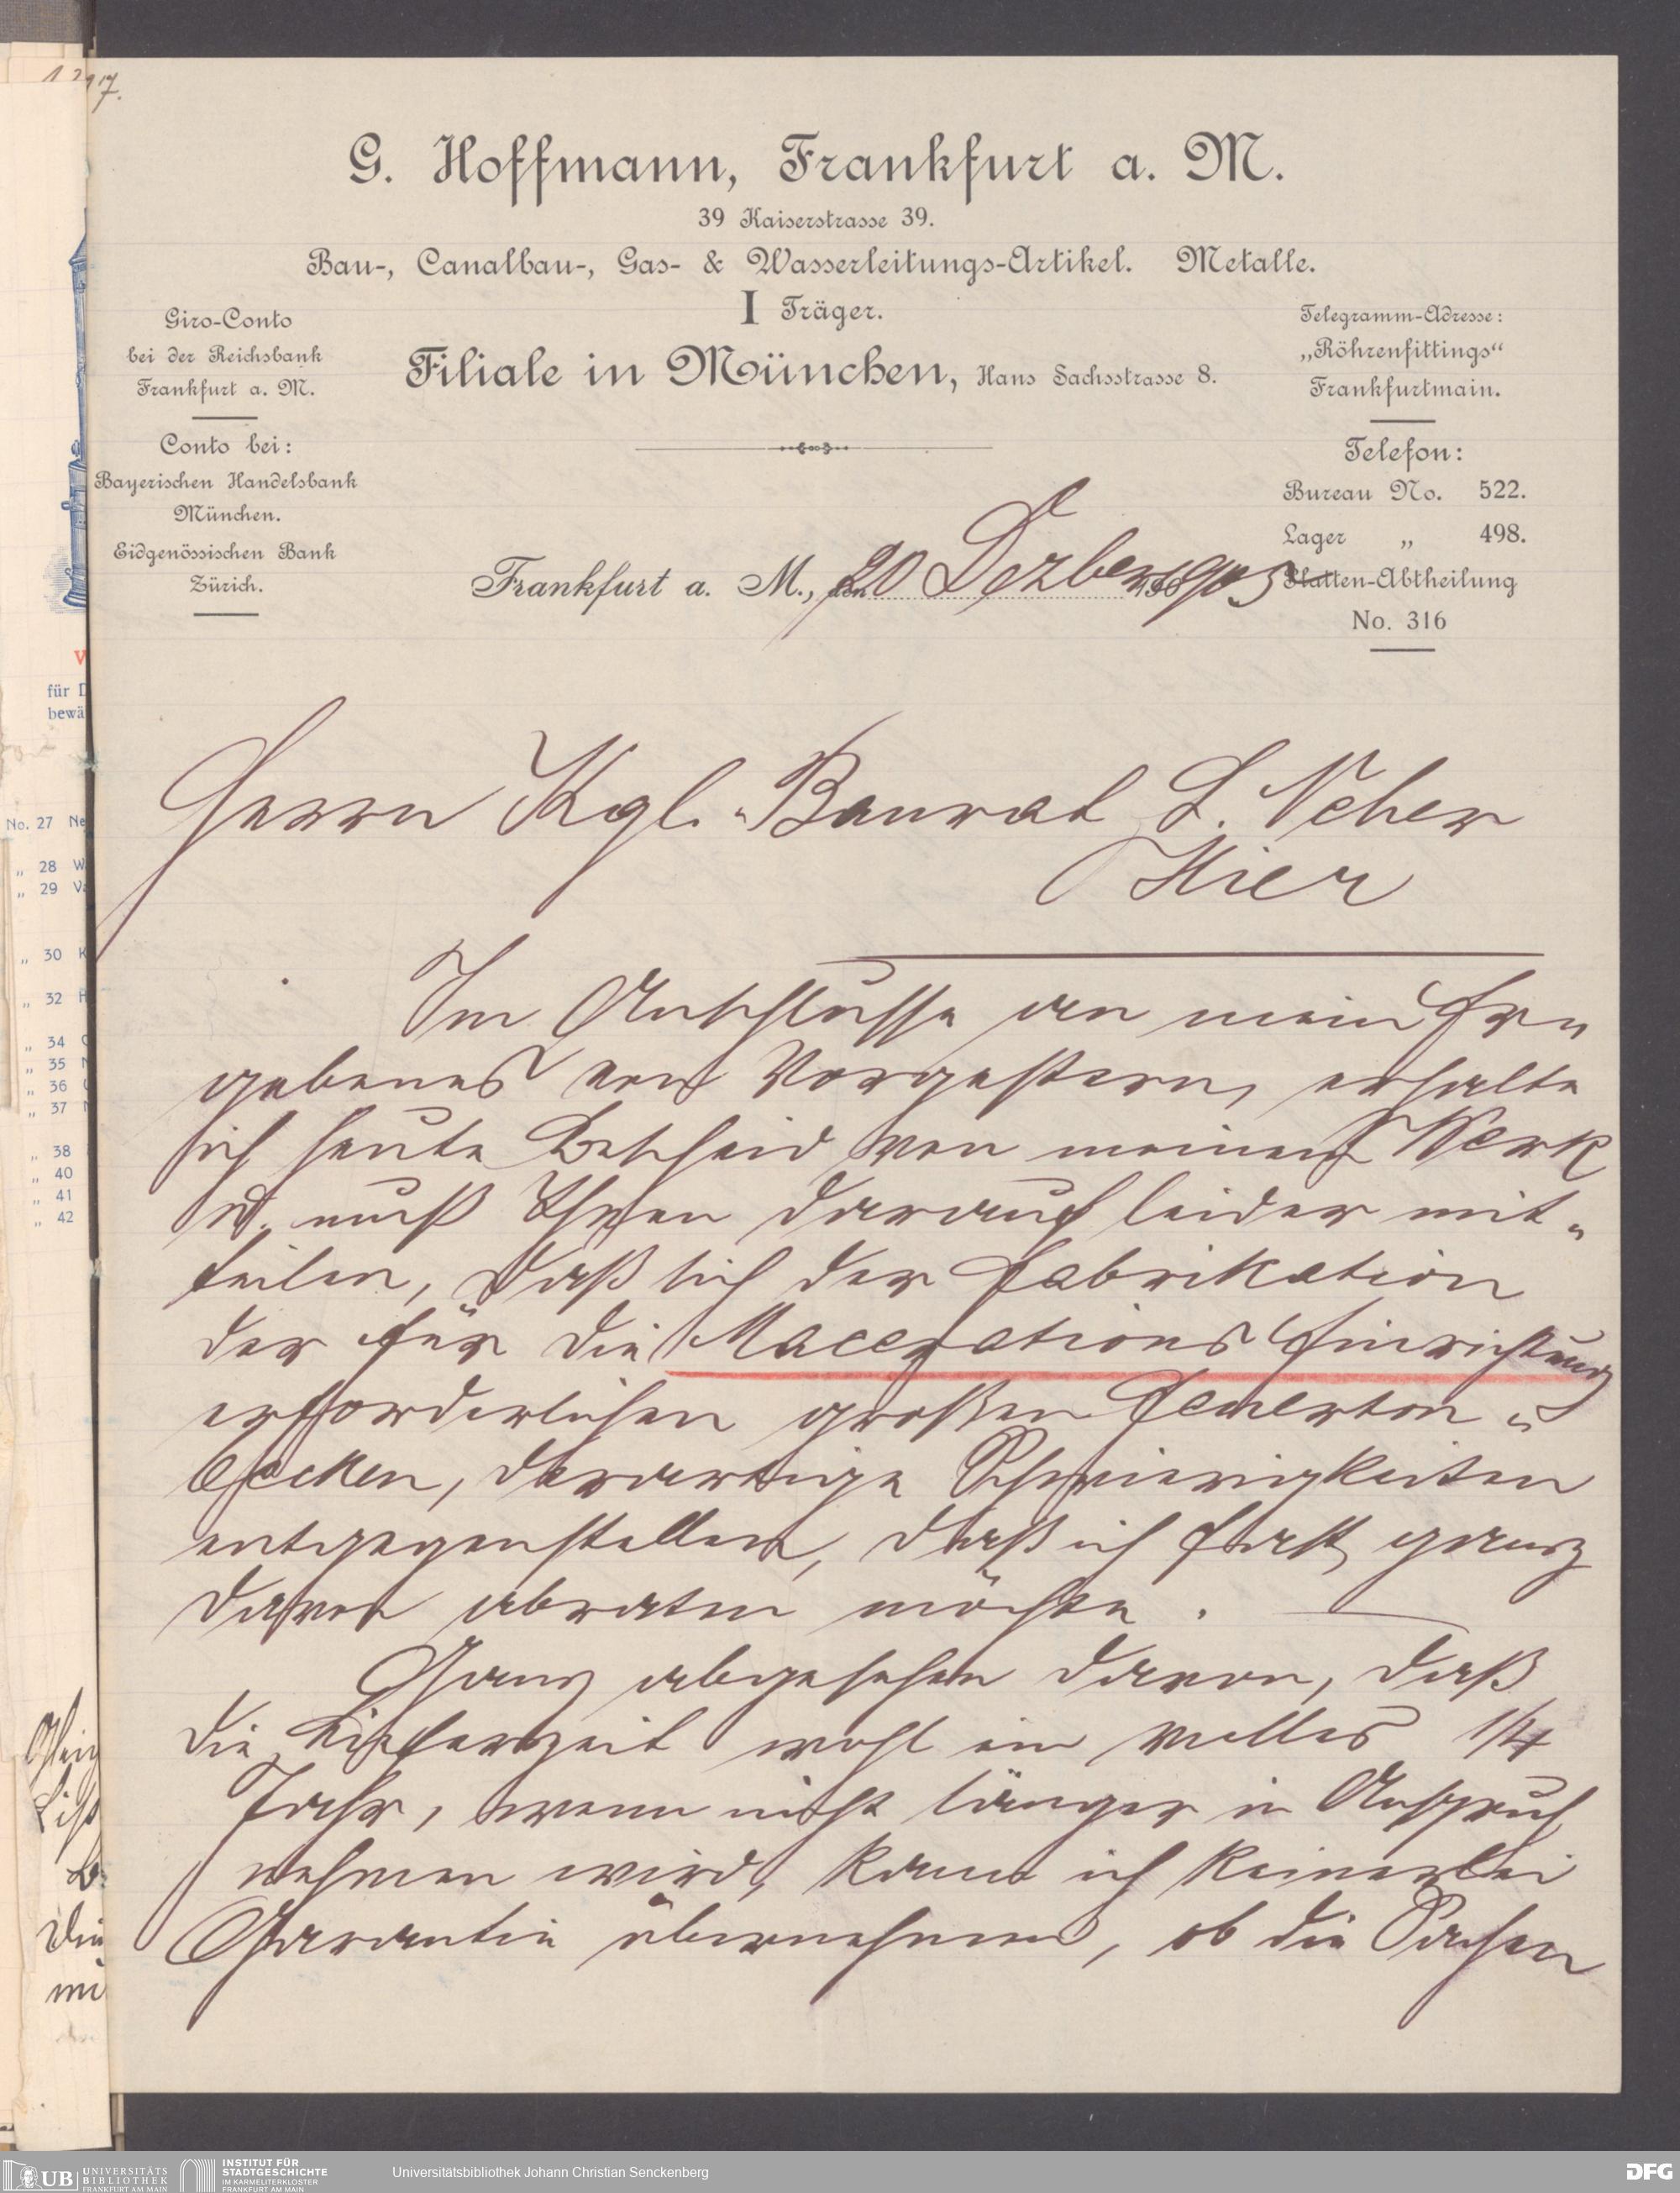 1 2917.
G. Hoffmann, Frankfurt a. M.
39 Kaiserstrasse 39.
Bau-, Canalbau-, Gas- & Wasserleitungs-Artikel. Metalle.
I Träger.
Filiale in München, Hans Sachsstrasse 8.
Giro-Conto
bei der Reichsbank
Frankfurt a. M.
Conto bei:
Bayerischen Handelsbank
München.
Eidgenössischen Bank
Zürich.
Telegramm-Adresse:
„Röhrenfittings“
Frankfurtmain.
Telefon:
Bureau No. 522.
Lager „ 498.
Platten-Abtheilung
No. 316
Frankfurt a. M., den 20 Dezber 1905
Herrn Kgl. Baurat L. Neher
Hier
Im Anschlusse an mein Er„
gebenes von Vorgestern, erhalte
ich heute Bescheid von meinem Werk
u. muß Ihnen darauf leider mit„
teilen, daß sich der Fabrikation
der für die Macerations Einrichtung
erforderlichen großen Feuerton„
becken, derartige Schwierigkeiten
entgegenstellen, daß ich fast ganz
davon abraten möchte.
Ganz abgesehen davon, daß
die Lieferzeit wohl ein volles 1/4
Jahr, wenn nicht länger in Anspruch
nehmen wird, kann ich keinerlei
Garantie übernehmen, ob die Sachen
für D
bewä
No. 27 Ne
„ 28 W
„ 29 Va
„ 30 K
„ 32 H
„ 34
„ 35
„ 36
„ 37
„ 38
„ 40
„ 41
„ 42
UB UNIVERSITÄTS
BIBLIOTHEK
FRANKFURT AM MAIN
INSTITUT FÜR
STADTGESCHICHTE
IM KARMELITERKLOSTER
FRANKFURT AM MAIN
Universitätsbibliothek Johann Christian Senckenberg
DFG